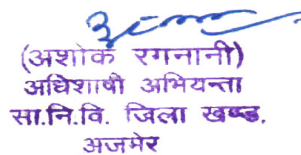 (अशोक रगनानी)
अधिशाषी अभियन्ता
सा.नि.वि. जिला खण्ड.
अजमेर